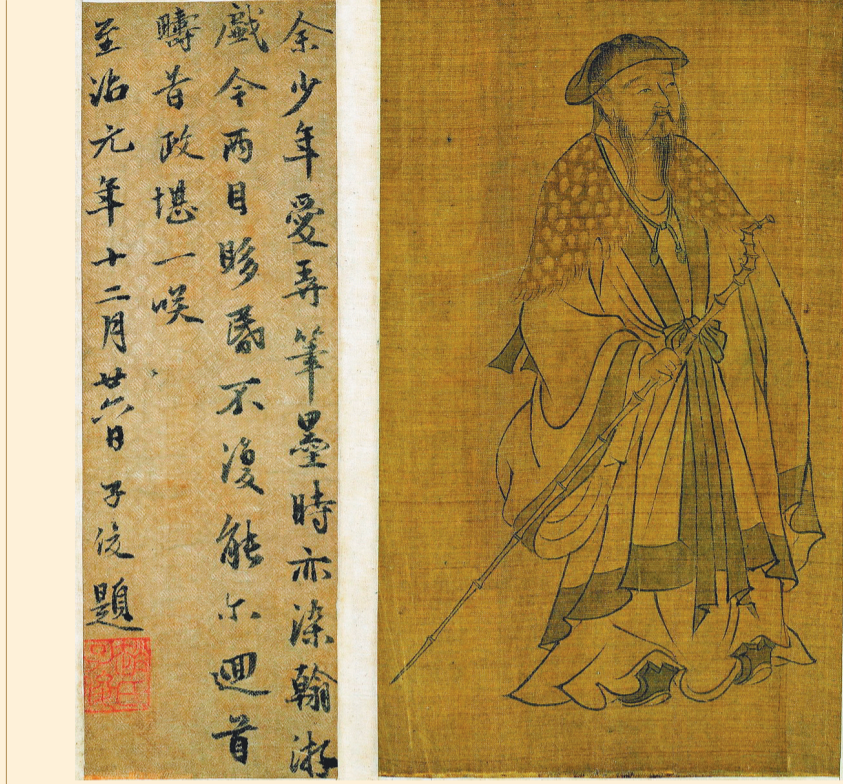 余少年愛弄筆墨時亦染翰游
戲今两目眵昬不復能尔迴首
疇昔政堪一咲
至治元年十二月廿六日子俊題